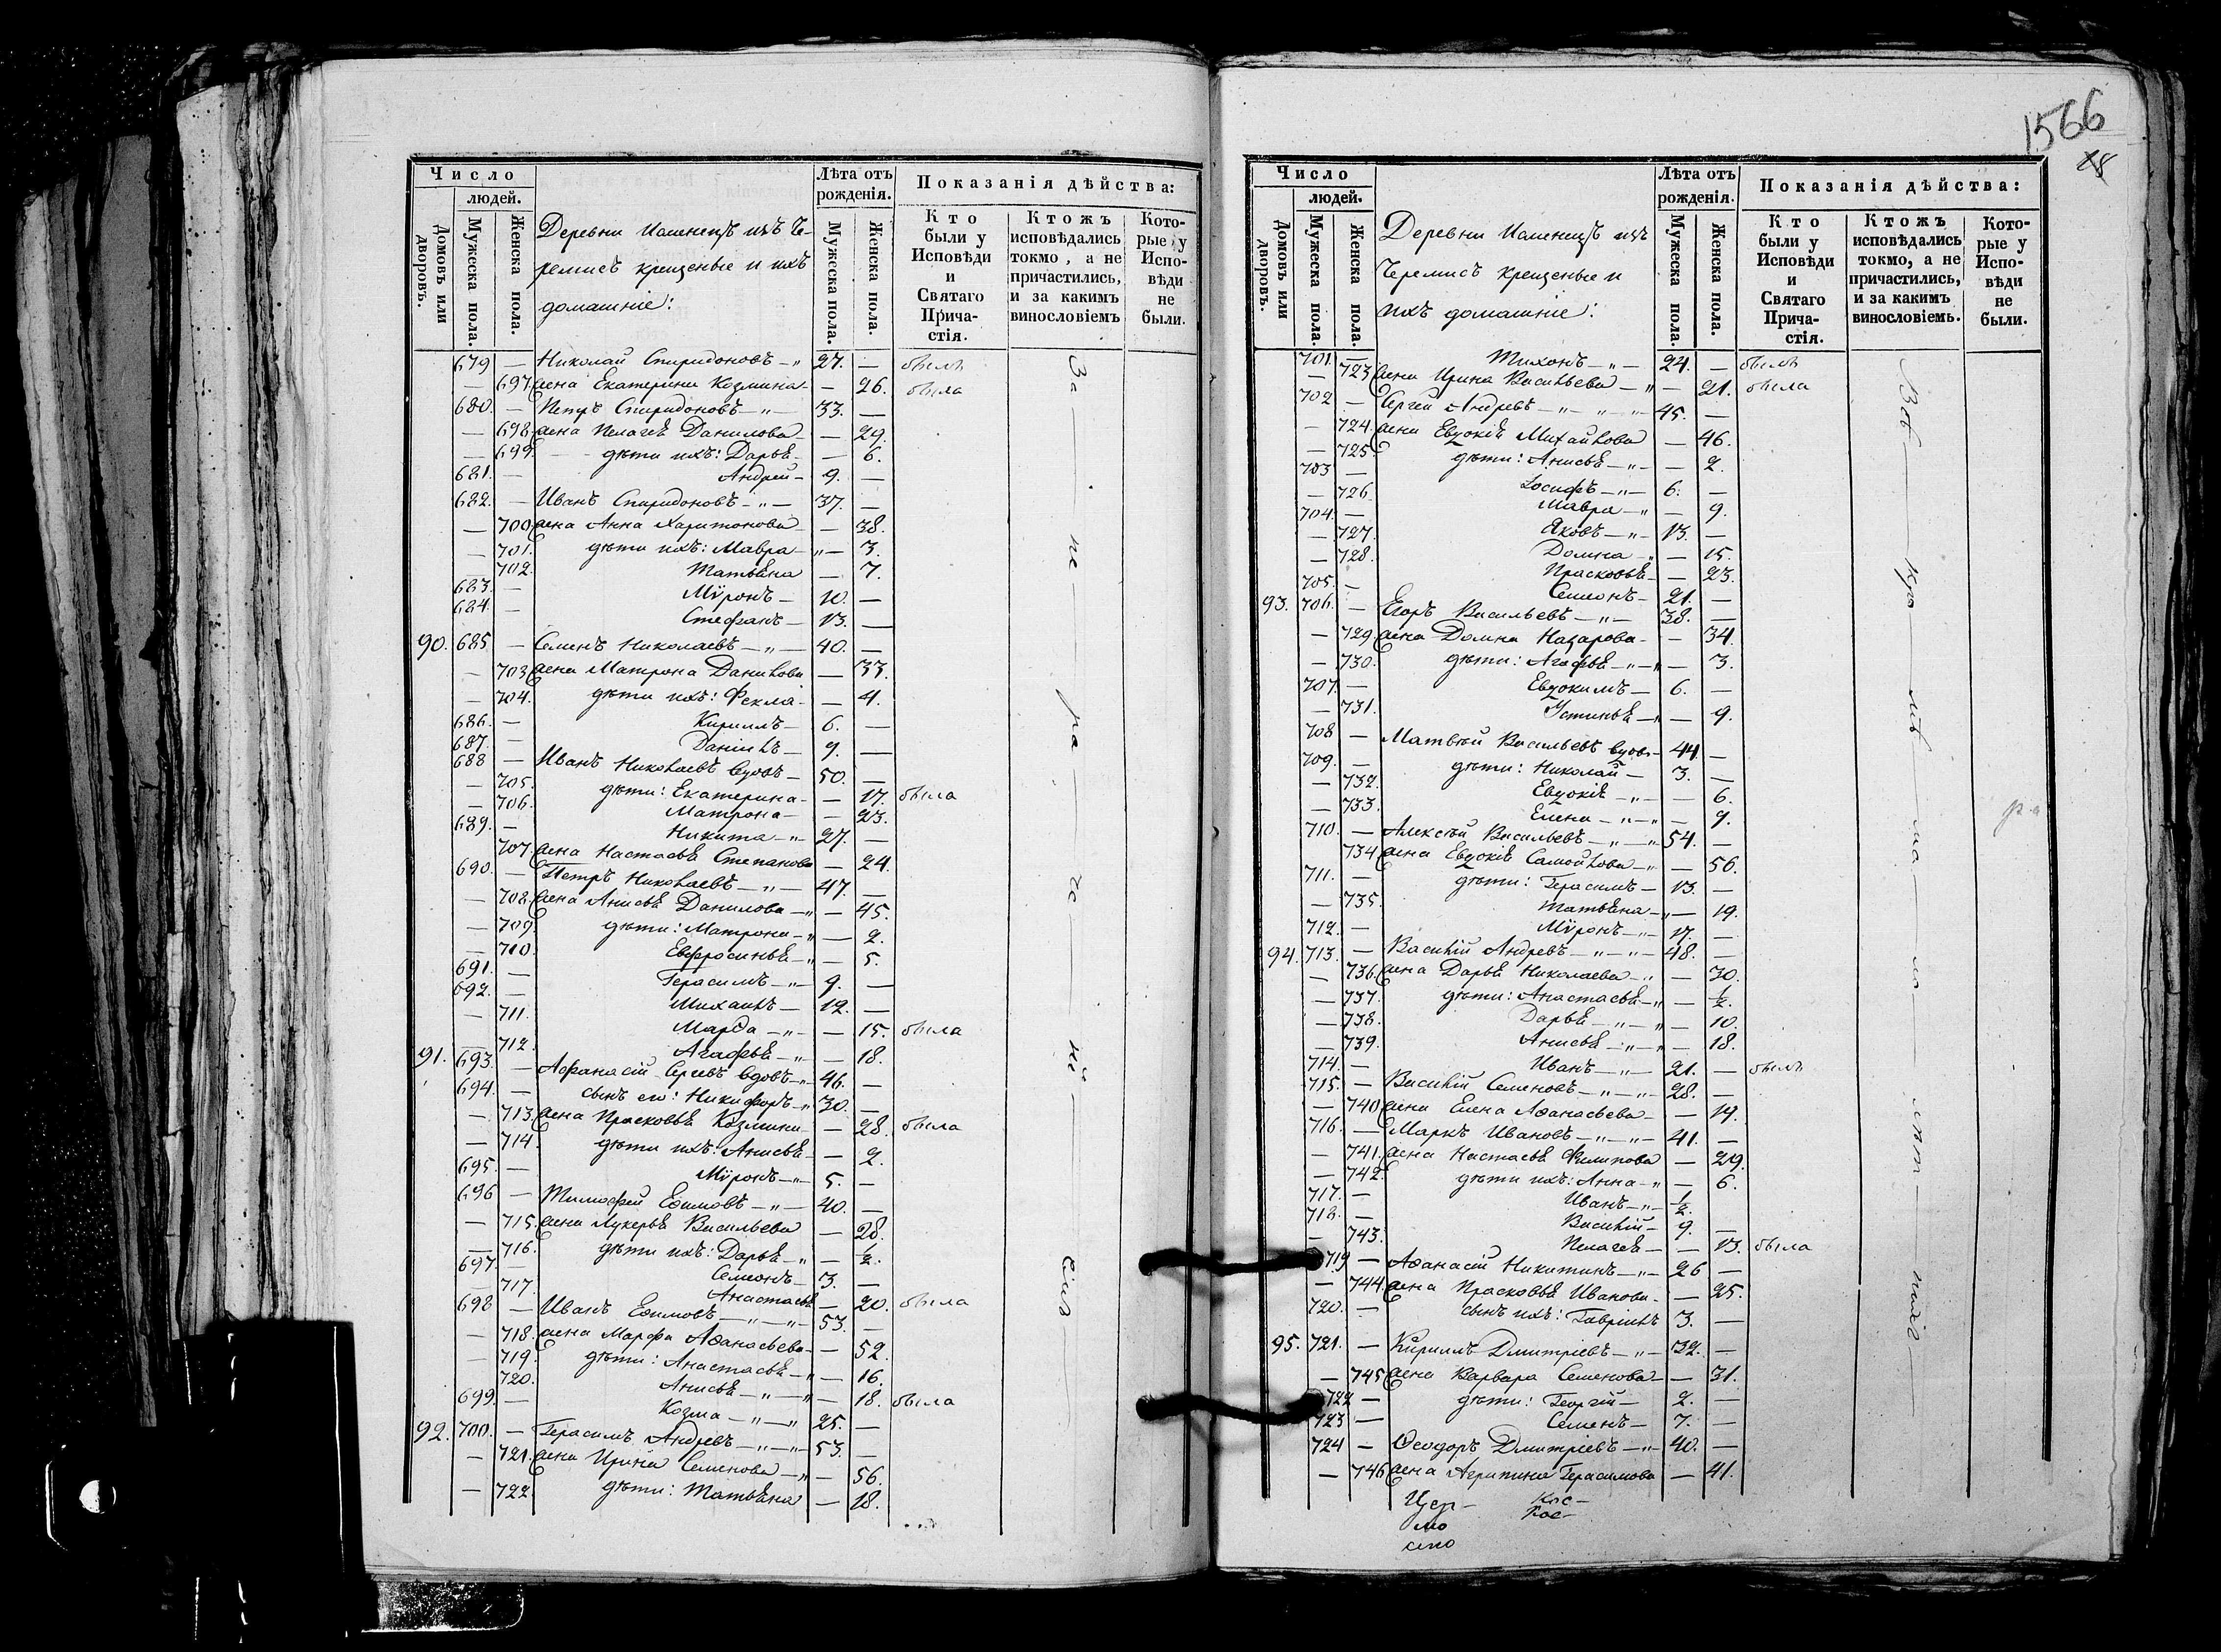 Число
людей.
Лѣта отъ
рожденія.
Показанія дѣйства:
Домовъ или
дворовъ.
Мужеска пола.
Женска пола.
Деревни Исменецъ изъ Че-
ремисъ крещеные и ихъ
домашніе:
Мужеска пола.
Женска пола.
Кто
были у
Исповѣди
и
Святаго
Прича-
стія.
Ктожъ
исповѣдались
токмо, а не
причастились,
и за какимъ
винословіемъ
Кото-
рые у
Испо-
вѣди
не
были.
679 — Николай Спиридоновъ 27. — былъ
— 697. жена Екатерина Козмина — 26. была
680. — Петръ Спиридоновъ 33. —
— 698 жена Пелагея Данилова — 29.
— 699. дѣти ихъ: Дарья — 6.
681. — Андрей 9. —
682. — Иванъ Спиридоновъ 37. —
— 700 жена Анна Харитонова — 38.
— 701. дѣти ихъ: Мавра — 3.
— 702. Татьяна — 7.
683. — Мѵронъ 10. —
684. — Стефанъ 13. —
90. 685 — Семенъ Николаевъ 40. —
— 703 жена Матрона Данилова — 33.
— 704. дѣти ихъ: Фекла — 4.
686. — Кириллъ 6. —
687. — Даніилъ 9. —
688 — Иванъ Николаевъ вдовъ 50. —
— 705. дѣти: Екатерина — 17. была
— 706. Матрона — 23.
689. — Никита 27. —
707. жена Настасья Степанова — 24.
690. — Петръ Николаевъ 47. —
— 708. жена Анисья Данилова — 45.
— 709. дѣти: Матрона — 2.
— 710. Евфросинья — 5.
691. — Герасимъ 9. —
692. — Михаилъ 12. —
— 711. Марѳа — 15. была
— 712. Агафья — 18.
91. 693. — Афанасій Сергѣевъ вдовъ 46. —
694. — сынъ его: Никифоръ 30. —
— 713. жена Прасковья Козмина — 28. была
— 714. дѣти ихъ: Анисья — 2.
695. — Мѵронъ 5. —
696 — Тимофей Ефимовъ 40. —
— 715. жена Лукерья Васильева — 28.
— 716. дѣти ихъ: Дарья — ½.
697 — Семенъ 3. —
— 717. Анастасья — 20. была
698 — Иванъ Ефимовъ 53. —
— 718. жена Марфа Аѳанасьева — 52.
— 719. дѣти: Анастасья — 16.
720. Анисья — 18. была
699. — Козма 25. —
92. 700. — Герасимъ Андреевъ 53. —
— 721. жена Ирина Семенова — 56.
— 722 дѣти: Татьяна — 18.
За не ра че ні емъ
1566
Число
людей.
Лѣта отъ
рожденія.
Показанія дѣйства:
Домовъ или
дворовъ.
Мужеска пола.
Женска пола.
Деревни Исменецъ изъ
Черемисъ крещеные и
ихъ домашніе:
Мужеска пола.
Женска пола.
Кто
были у
Исповѣди
и
Святаго
Прича-
стія.
Ктожъ
исповѣдались
токмо, а не
причастились,
и за какимъ
винословіемъ.
Кото-
рые у
Испо-
вѣди
не
были.
701. — Тихонъ 24. — былъ
— 723 жена Ирина Васильева — 21. была
702 — Сергей Андреевъ 45. —
— 724. жена Евдокія Михайлова — 46.
— 725 дѣти: Анисья — 2.
703 — Іосифъ 6. —
— 726. Мавра — 9.
704. — Яковъ 13. —
— 727. Домна — 15.
— 728. Прасковья — 23.
705. — Семенъ 21. —
93. 706. — Егоръ Васильевъ 38. —
— 729. жена Домна Назарова — 34.
— 730. дѣти: Агафья — 3.
707. — Евдокимъ 6. —
— 731. Устинья — 9.
708 — Матвей Васильевъ вдовъ 44. —
709. — дѣти: Николай 3. —
— 732. Евдокія — 6.
— 733. Елена — 9.
710. — Алексѣй Васильевъ 54. —
734 жена Евдокія Самойлова — 56.
711. — дѣти: Герасимъ 13. —
— 735. Татьяна — 19.
712. — Мѵронъ 17. —
94. 713. — Василій Андреевъ 48. —
— 736. жена Дарья Николаева — 30.
— 737. дѣти: Анастасья — ½.
— 738. Дарья — 10.
— 739. Анисья — 18.
714. — Иванъ 21. — былъ
715. — Василій Семеновъ 28. —
— 740 жена Елена Аѳанасьева — 19.
716. — Маркъ Ивановъ 41. —
— 741. жена Настасья Филипова — 29.
— 742. дѣти ихъ: Анна — 6.
717. — Иванъ ½.
718. — Василій 9. —
— 743. Пелагея — 13. была
719 — Аѳанасій Никитинъ 26 —
— 744. жена Прасковья Иванова — 25.
720. — сынъ ихъ: Гавріилъ 3. —
95. 721. — Кириллъ Дмитріевъ 32. —
— 745 жена Варвара Семенова — 31.
722 — дѣти: Георгій 2. —
723 — Семенъ 7. —
724 — Ѳеодоръ Дмитріевъ 40. —
— 746 жена Агрипина Герасимова — 41.